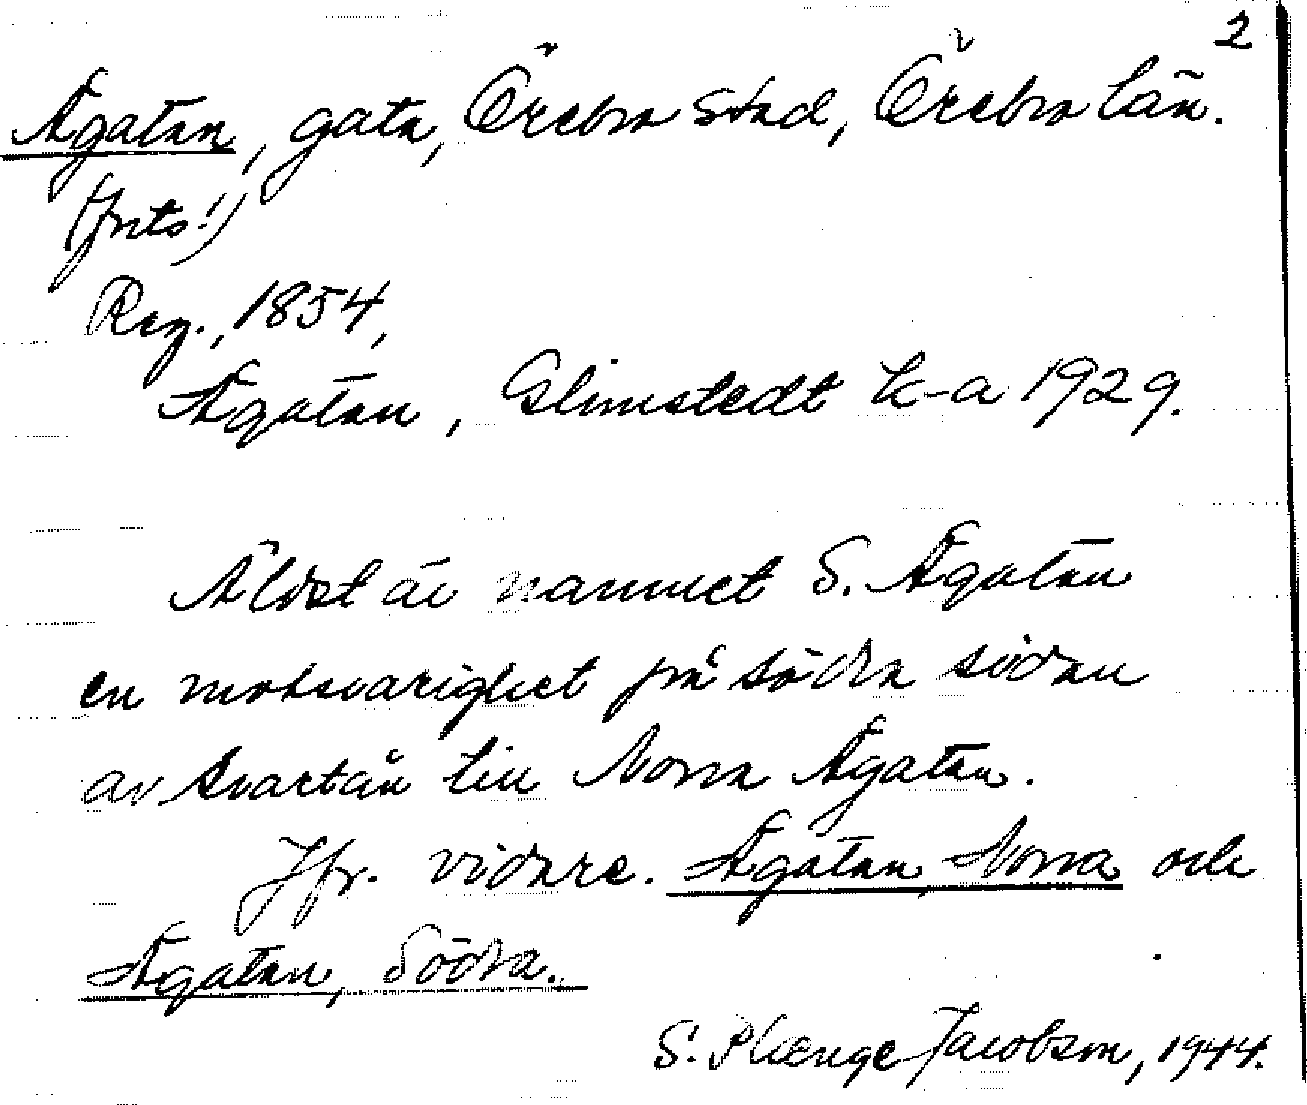 2
Ågatan, gata, Örebro stad, Örebro län.
(frts!)
Reg., 1854,
Ågatan, Glimstedt k-a 1929.
Äldst är namnet S. Ågatan
en motsvarighet på södra sidan
av Svartån till Norra Ågatan.
Jfr. vidare. Ågatan, Norra och
Ågatan, Södra.
S. Plænge Jacobson, 1944.